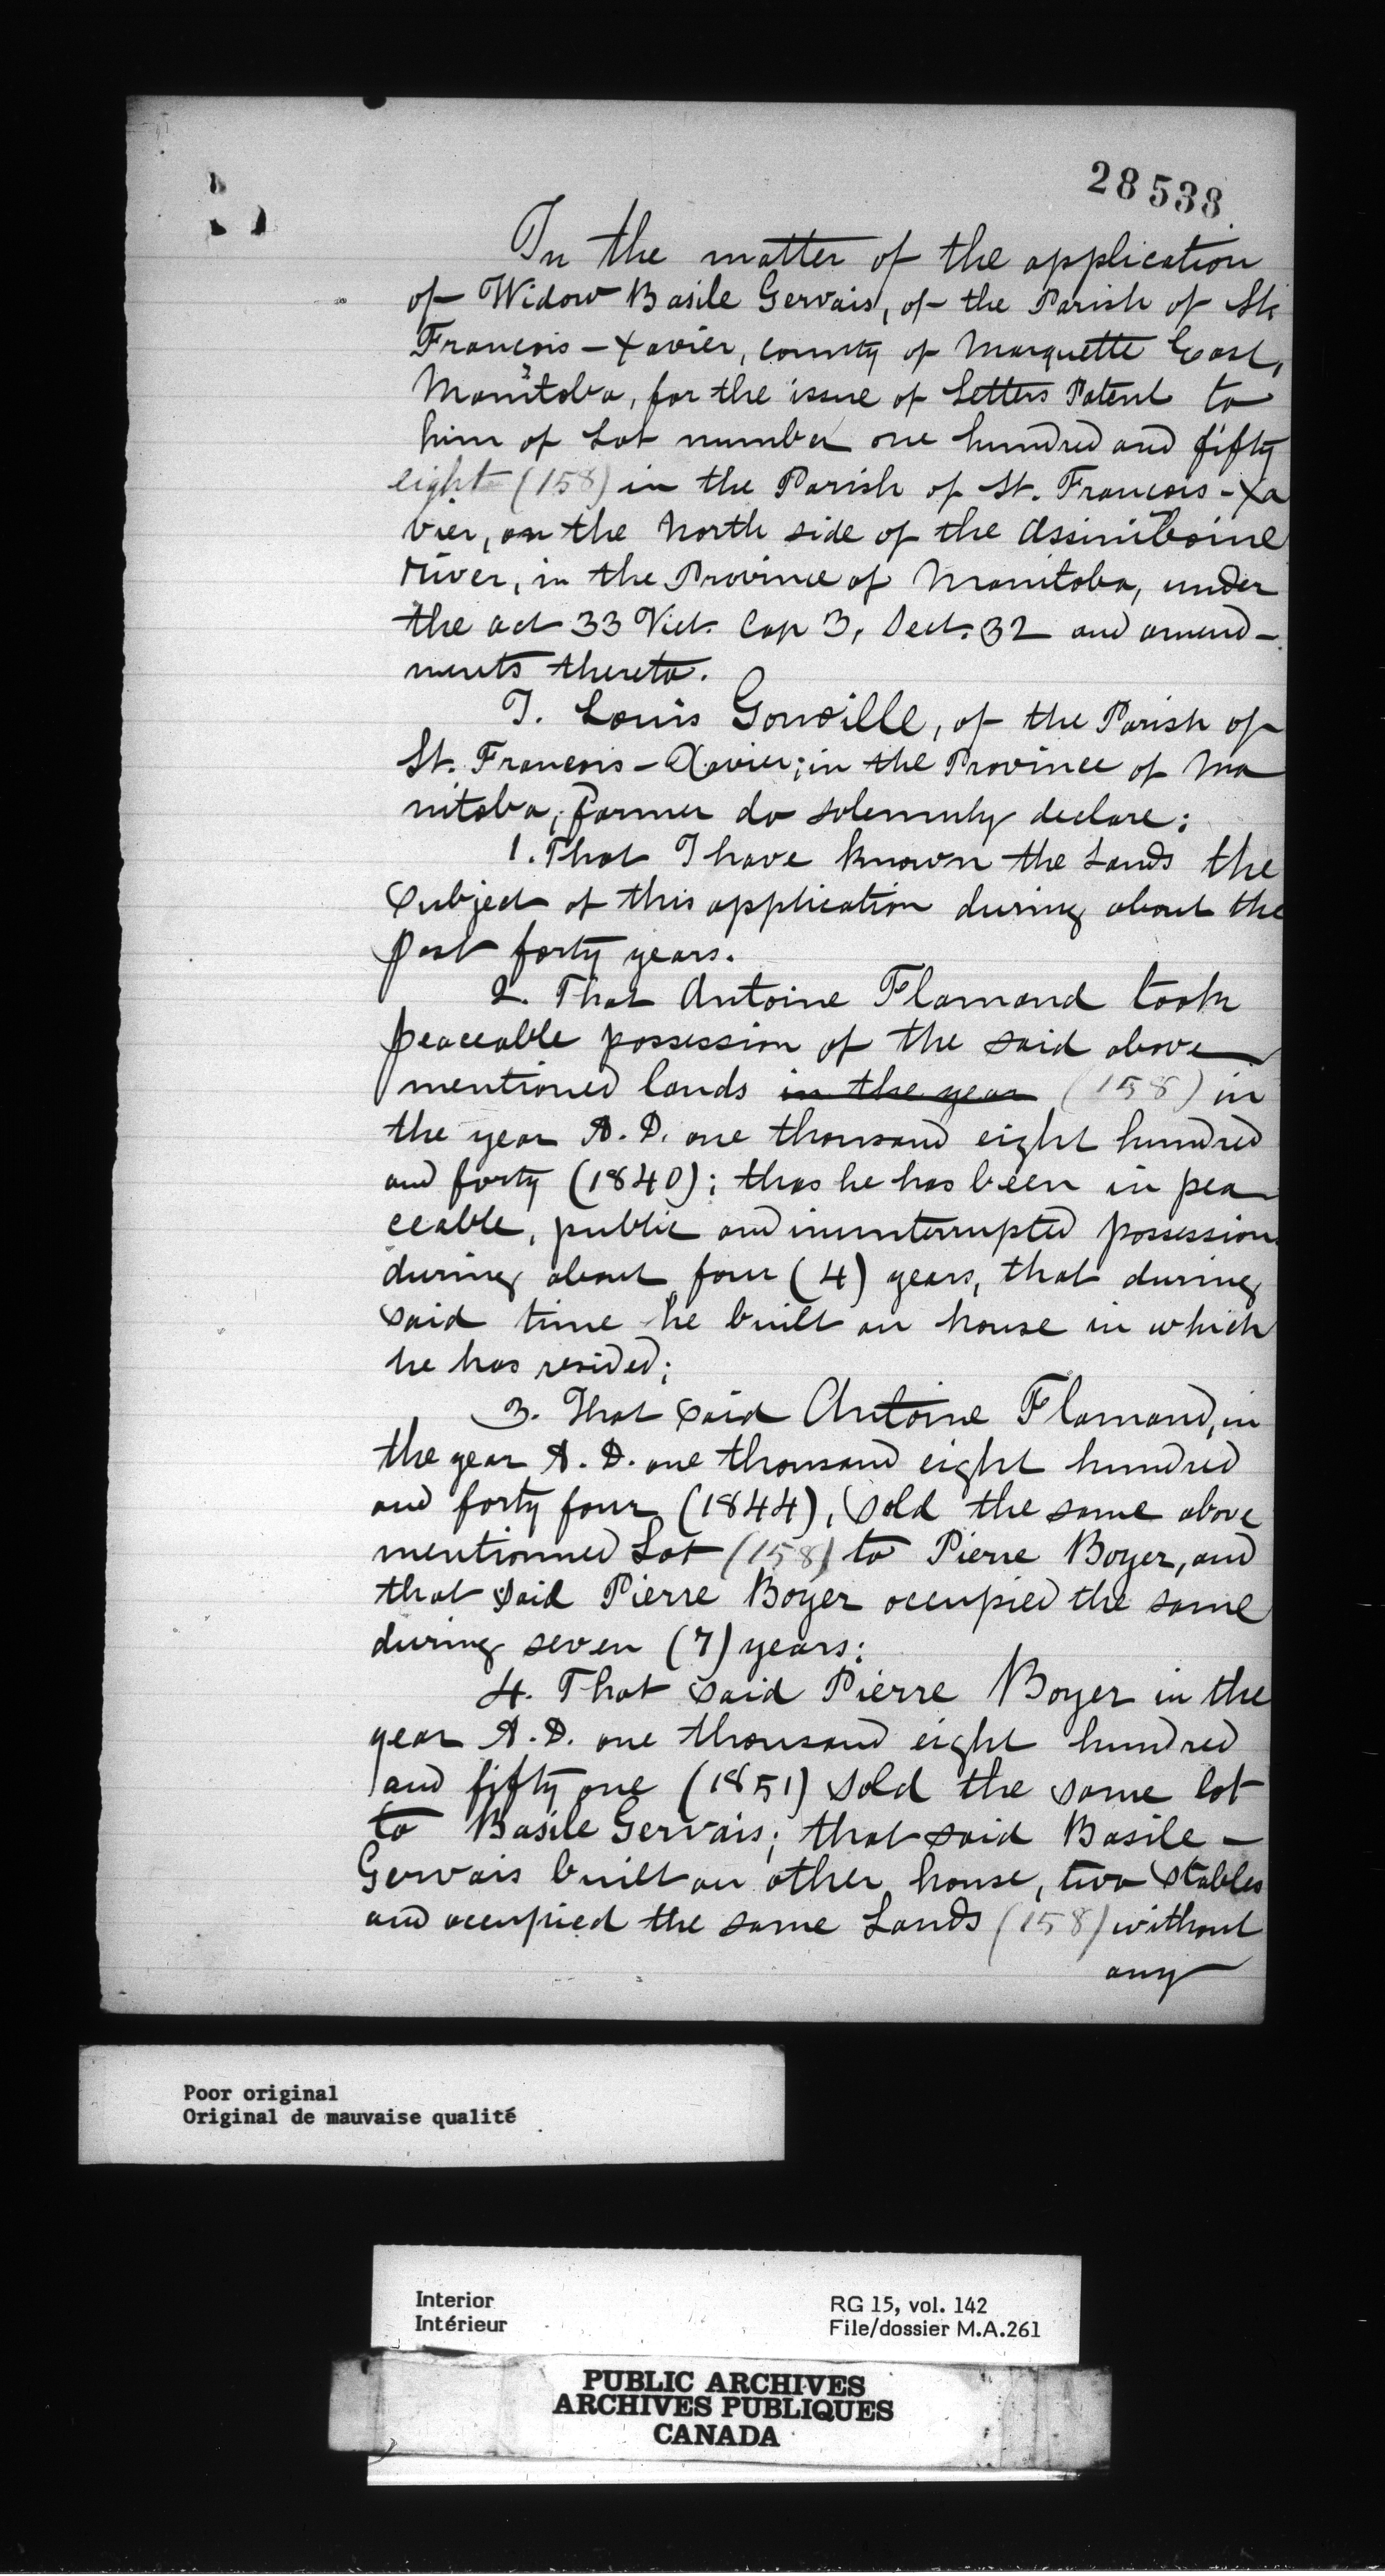 28538
In the matter of the application
of Widow Basile Gervais, of the Parish of St.
Francois-Xavier, county of Marquette East,
Manitoba, for the issue of Letters Patent to
him of Lot number one hundred and fifty
eight (158) in the Parish of St. Francois-Xa
vier, on the North side of the Assiniboine
River, in the Province of Manitoba, under
the act 33 Vict. Cap 3, Sect. 32 and amend-
ments thereto.
I. Louis Gonville, of the Parish of
St. Francois-Xavier, in the Province of Ma
nitoba, farmer do solemnly declare:
1. That I have known the Lands the
subject of this application during about the
past forty years.
2. That Antoine Flamand took
peaceable possession of the said above
mentioned lands in the year (158) in
the year A.D. one thousand eight hundred
and forty (1840); thas he has been in pea
ceable, public and inunterrupted possession
during about four (4) years, that during
said time he built an house in which
he has resided;
3. That said Antoine Flamand, in
the year A.D. one thousand eight hundred
and forty four (1844), sold the same above
mentionned Lot (158) to Pierre Boyer, and
that said Pierre Boyer occupied the same
during seven (7) years;
4. That said Pierre Boyer in the
year A.D. one thousand eight hundred
and fifty one (1851) sold the same lot
to Basile Gervais; that said Basile-
Gervais built an other house, two stables
and occupied the same Lands (158) without
any
Poor original
Original de mauvaise qualité
Interior
Intérieur
RG 15, vol. 142
File/dossier M.A.261
PUBLIC ARCHIVES
ARCHIVES PUBLIQUES
CANADA